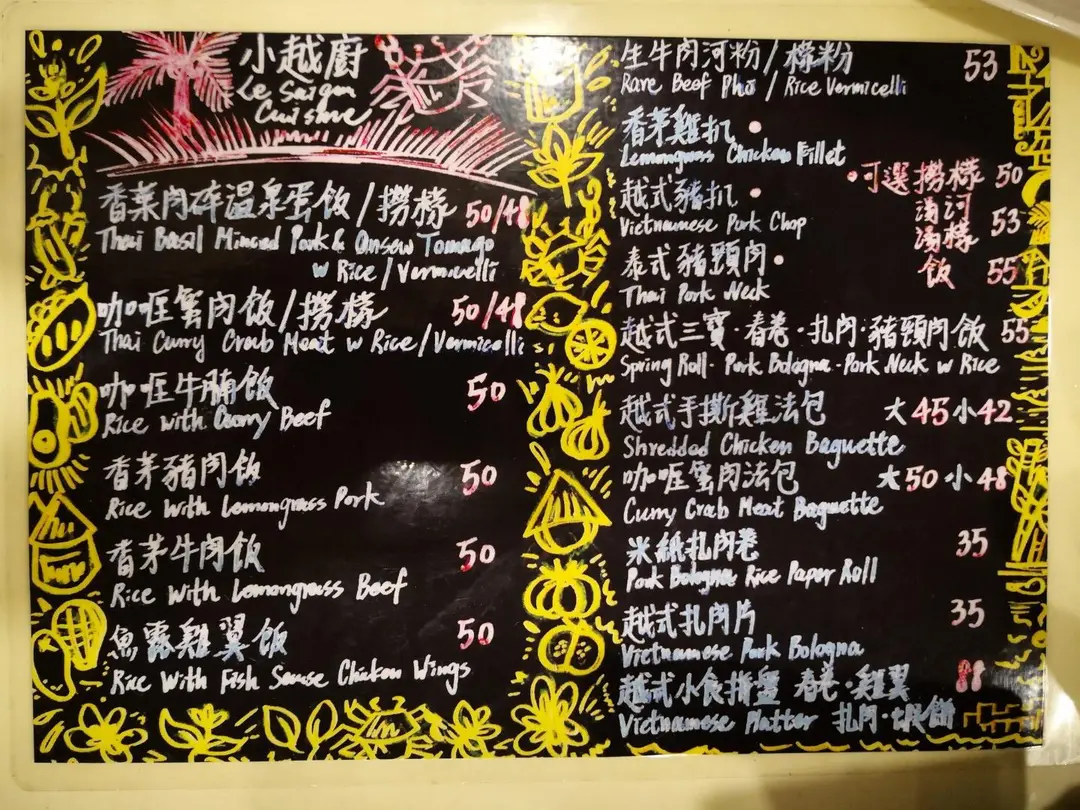 小越廚
Le Saigon
Cuisine
香菜肉碎温泉蛋飯/撈檬 50/48
Thai Basil Minced Pork & Onsen Tomago
w Rice/Vermicelli
咖喱蟹肉飯/撈檬 50/48
Thai Curry Crab Meat w Rice/Vermicelli
咖喱牛腩飯 50
Rice with Curry Beef
香茅豬肉飯 50
Rice with Lemongrass Pork
香茅牛肉飯 50
Rice with Lemongrass Beef
魚露雞翼飯 50
Rice With Fish Sause Chicken Wings
生牛肉河粉/檬粉 53
Rare Beef Pho / Rice Vermicelli
香茅雞扒
Lemongrass Chicken Fillet
越式豬扒
Vietnamese Pork Chop
泰式豬頸肉
Thai Pork Neck
可選撈檬 50
湯河
湯檬 53
飯 55
越式三寶·春卷·扎肉·豬頸肉·飯 55
Spring Roll · Pork Bologna · Pork Neck w Rice
越式手撕雞法包 大45小42
Shredded Chicken Baguette
咖喱蟹肉法包 大50小48
Curry Crab Meat Baguette
米紙扎肉卷 35
Pork Bologna Rice Paper Roll
越式扎肉片 35
Vietnamese Pork Bologna
越式小食拼盤 春卷·雞翼 88
Vietnamese Platter 扎肉·蜆餅